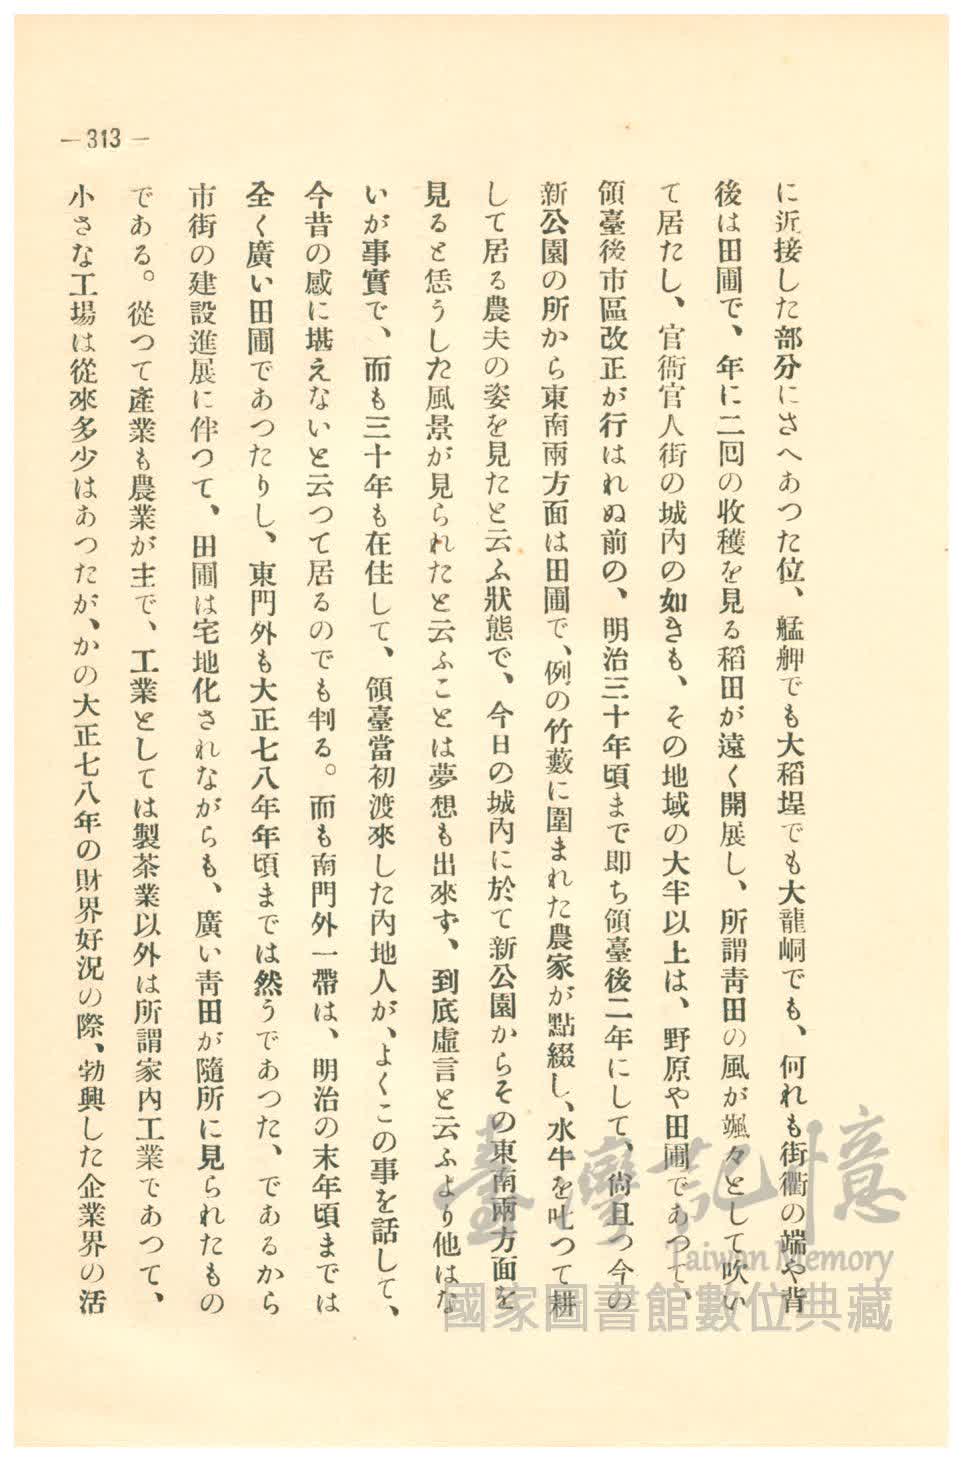 —313—
に近接した部分にさへあつた位、艋舺でも大稻埕でも大龍峒でも、何れも街衢の端や背
後は田圃で、年に二囘の收穫を見る稻田が遠く開展し、所謂靑田の風が颯々として吹い
て居たし、官衙官人街の城內の如きも、その地域の大半以上は、野原や田圃であつて、
領臺後市區改正が行はれぬ前の、明治三十年頃まで卽ち領臺後二年にして、尙且つ今の
新公園の所から東南兩方面は田圃で、例の竹藪に圍まれた農家が點綴し、水牛を叱つて耕
して居る農夫の姿を見たと云ふ狀態で、今日の城內に於て新公園からその東南兩方面を
見ると恁うした風景が見られたと云ふことは夢想も出來ず、到底虛言と云ふより他はな
いが事實で、而も三十年も在住して、領臺當初渡來した內地人が、よくこの事を話して、
今昔の感に堪えないと云つて居るのでも判る。而も南門外一帶は、明治の末年頃までは
全く廣い田圃であつたりし、東門外も大正七八年年頃までは然うであつた、であるから
市街の建設進展に伴つて、田圃は宅地化されながらも、廣い靑田が隨所に見られたもの
である。從つて產業も農業が主で、工業としては製茶業以外は所謂家內工業であつて、
小さな工場は從來多少はあつたが、かの大正七八年の財界好況の際、勃興した企業界の活
臺灣記憶
Taiwan Memory
國家圖書館數位典藏